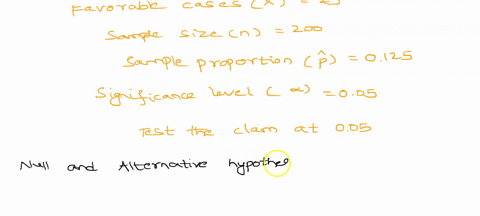 Favorable cases (X) = 25
Sample size (n) = 200
Sample proportion (p̂) = 0.125
Significance level (α) = 0.05
Test the claim at 0.05
Null and Alternative hypothes